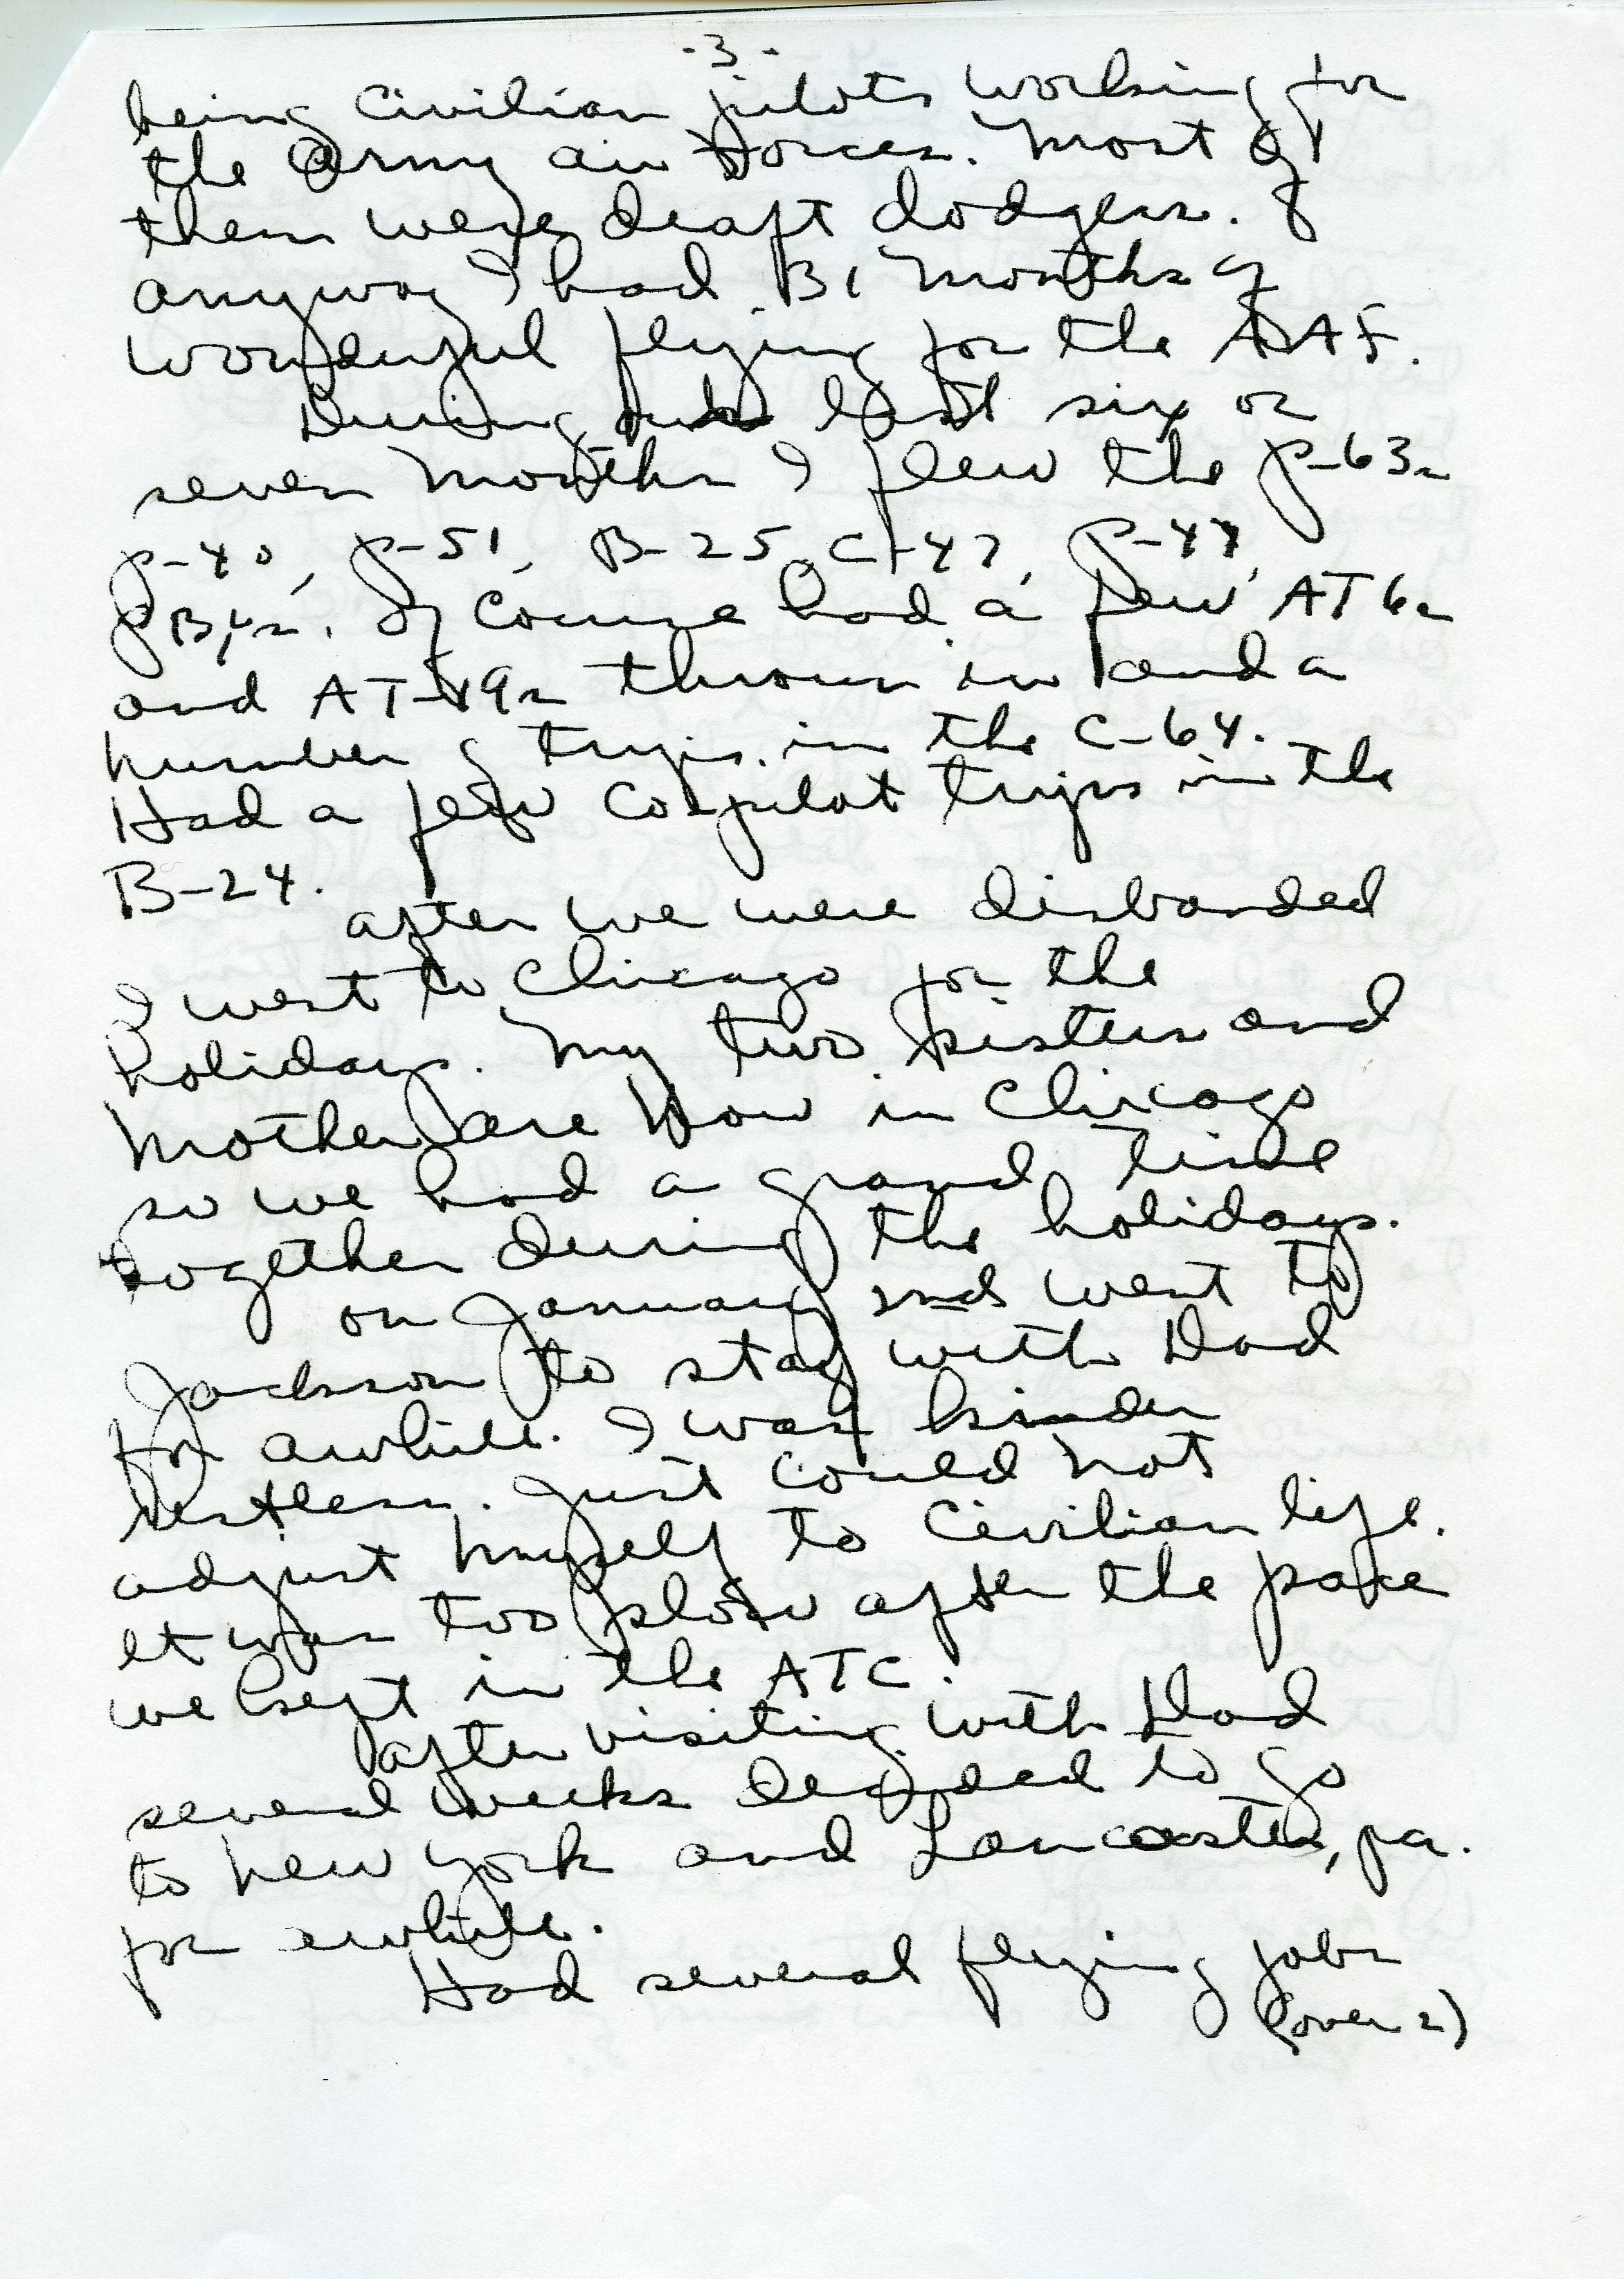 -3-
being civilian pilots working for
the Army air Forces. Most of
them were draft dodgers.
anyway I had 31 months of
wonderful flying for the AAF.
During last six or
seven months I flew the P-63s
P-40, P-51, B-25, C-47, P-47,
of course had a few AT6s
and AT-19s thrown in and a
number of trips in the C-64.
Had a few Co-pilot trips in the
B-24.
after we were disbanded
I went to Chicago for the
holidays. My two sisters and
Mother are Now in Chicago
so we had a grand time
together during the holidays.
on January 2nd went to
Jackson to stay with Dad
for awhile. I was kinder
restless. Just could not
adjust myself to Civilian life.
It was too slow after the pace
we kept in the ATC.
after visiting with Dad
several weeks decided to go
to New York and Lancaster, pa.
for awhile.
Had several flying jobs
(over 2)